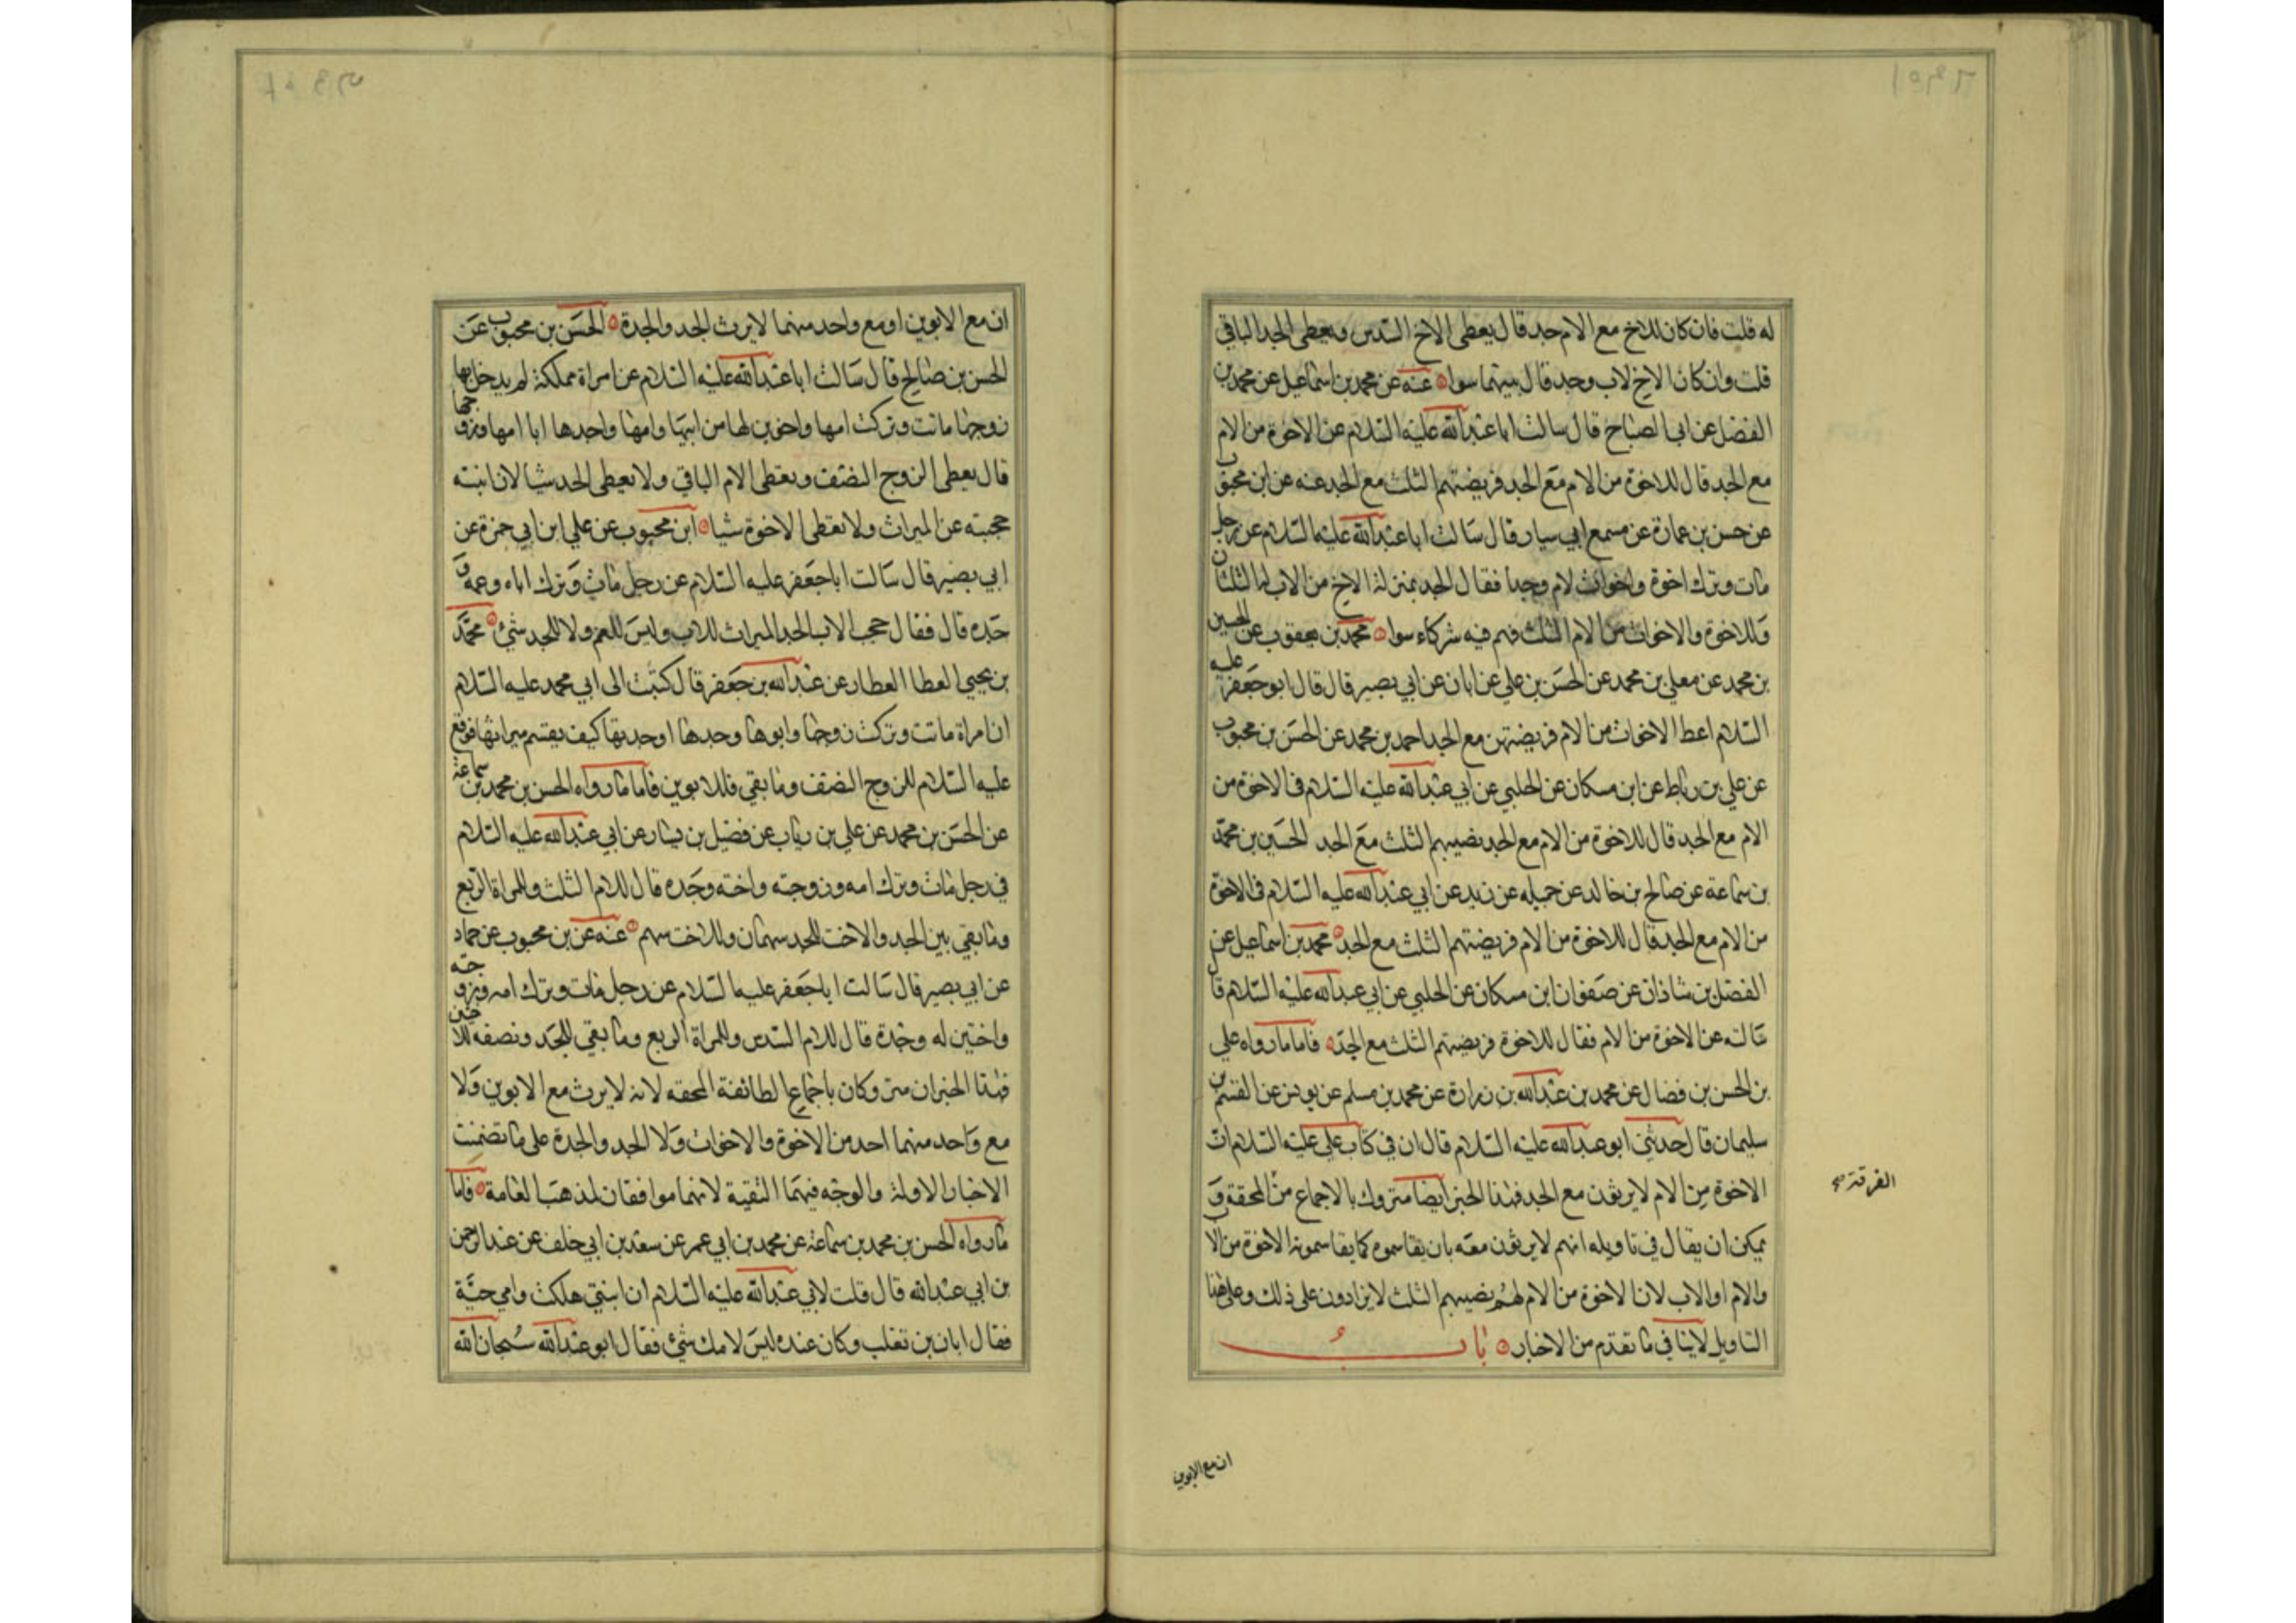 له قلت فان كان للاخ مع الام جد قال يعطى الاخ السدس ويعطى الجد الباقي
قلت وان كان الاخ لاب وجد قال بينهما سوا عنه عن محمد بن اسماعيل عن محمد بن
الفضل عن ابي الصباح قال سالت ابا عبدالله عليه السلام عن الاخوة من الام
مع الجد قال للاخوة من الام مع الجد فريضتهم الثلث مع الجد عنه عن ابن محبوب
عن حسن بن عمارة عن مسمع ابي سيار قال سالت ابا عبدالله عليه السلام عن رجل
مات وترك اخوة واخوات لام وجدا فقال الجد بمنزلة الاخ من الاب له الثلثان
وللاخوة والاخوات من الام الثلث فهم فيه شركاء سوا محمد بن يعقوب عن الحسين
بن محمد عن معلى بن محمد عن الحسن بن علي عن ابان عن ابي بصير قال قال ابو جعفر عليه
السلام اعط الاخوات من الام فريضتهن مع الجد احمد بن محمد عن الحسن بن محبوب
عن علي بن رباط عن ابن مسكان عن الحلبي عن ابي عبدالله عليه السلام في الاخوة من
الام مع الجد قال للاخوة من الام مع الجد نصيبهم الثلث مع الجد الحسين بن محمد
بن سماعة عن صالح بن خالد عن جميله عن زيد عن ابي عبدالله عليه السلام في الاخوة
من الام مع الجد قال للاخوة من الام فريضتهم الثلث مع الجد محمد بن اسماعيل عن
الفضل بن شاذان عن صفوان ابن مسكان عن الحلبي عن ابي عبدالله عليه السلام قال
سالته عن الاخوة من الام فقال للاخوة فريضتهم الثلث مع الجد فاما ما رواه علي
بن الحسن بن فضال عن محمد بن عبدالله بن زرارة عن محمد بن مسلم عن يونس عن القسم بن
سليمان قال حدثني ابو عبدالله عليه السلام قال ان في كتاب علي عليه السلام ان
الاخوة من الام لا يرثون مع الجد فهذا الخبر ايضا متروك بالاجماع من المحقة و
الفرقة صح
يمكن ان يقال في تاويله انهم لا يرثون معه بان يقاسموه كما يقاسمونه الاخوة من الا
والام او الاب لان الاخوة من الام لهم نصيبهم الثلث لا يزادون على ذلك وعلى هذا
التاويل لا ينافي ما تقدم من الاخبار باب
ان مع الابوين
ان مع الابوين او مع واحد منهما لا يرث الجد والجدة الحسن بن محبوب عن
الحسن بن صالح قال سالت ابا عبدالله عليه السلام عن امراة مملكة لم يدخل بها
زوجها ماتت وتركت امها واخوين لها من ابيها وامها وجدها ابا امها وزوجها
قال يعطى الزوج النصف ويعطى الام الباقي ولا يعطى الجد شيا لان ابنته
حجبته عن الميراث ولا يعطى الاخوة شيا ابن محبوب عن علي ابن ابي حمزة عن
ابي بصير قال سالت ابا جعفر عليه السلام عن رجل مات وترك اباه وعمه و
جده قال فقال حجب الاب الجد الميراث للاب وليس للعم ولا للجد شيء محمد
بن يحيى العطا العطار عن عبدالله بن جعفر قال كتبت الى ابي محمد عليه السلام
ان امراة ماتت وتركت زوجها وابوها وجدها او جدتها كيف يقسم ميراثها فوقع
عليه السلام للزوج النصف وما بقي فللابوين فاما ما رواه الحسن بن محمد بن سماعة
عن الحسن بن محمد عن علي بن رياب عن فضيل بن يسار عن ابي عبدالله عليه السلام
في رجل مات وترك امه وزوجته واخته وجده قال للام الثلث وللمراة الربع
وما بقي بين الجد والاخت للجد سهمان وللاخت سهم عنه عن بن محبوب عن حماد
عن ابي بصير قال سالت ابا جعفر عليه السلام عن رجل مات وترك امه وزوجته
واختين له وجده قال للام السدس وللمراة الربع وما بقي للجد ونصفه للاختين
فهذا الخبران متروكان باجماع الطائفة المحقه لانه لا يرث مع الابوين ولا
مع واحد منهما احد من الاخوة والاخوات ولا الجد والجدة على ما تضمنت
الاخبار الاولة والوجه فيهما التقية لانهما موافقان لمذهب العامة فاما
ما رواه الحسن بن محمد بن سماعة عن محمد بن ابي عمر عن سعد بن ابي خلف عن عبدالرحمن
بن ابي عبدالله قال قلت لابي عبدالله عليه السلام ان ابنتي هلكت وامي حية
فقال ابان بن تغلب وكان عنده ليس لامك شيء فقال ابو عبدالله سبحان الله